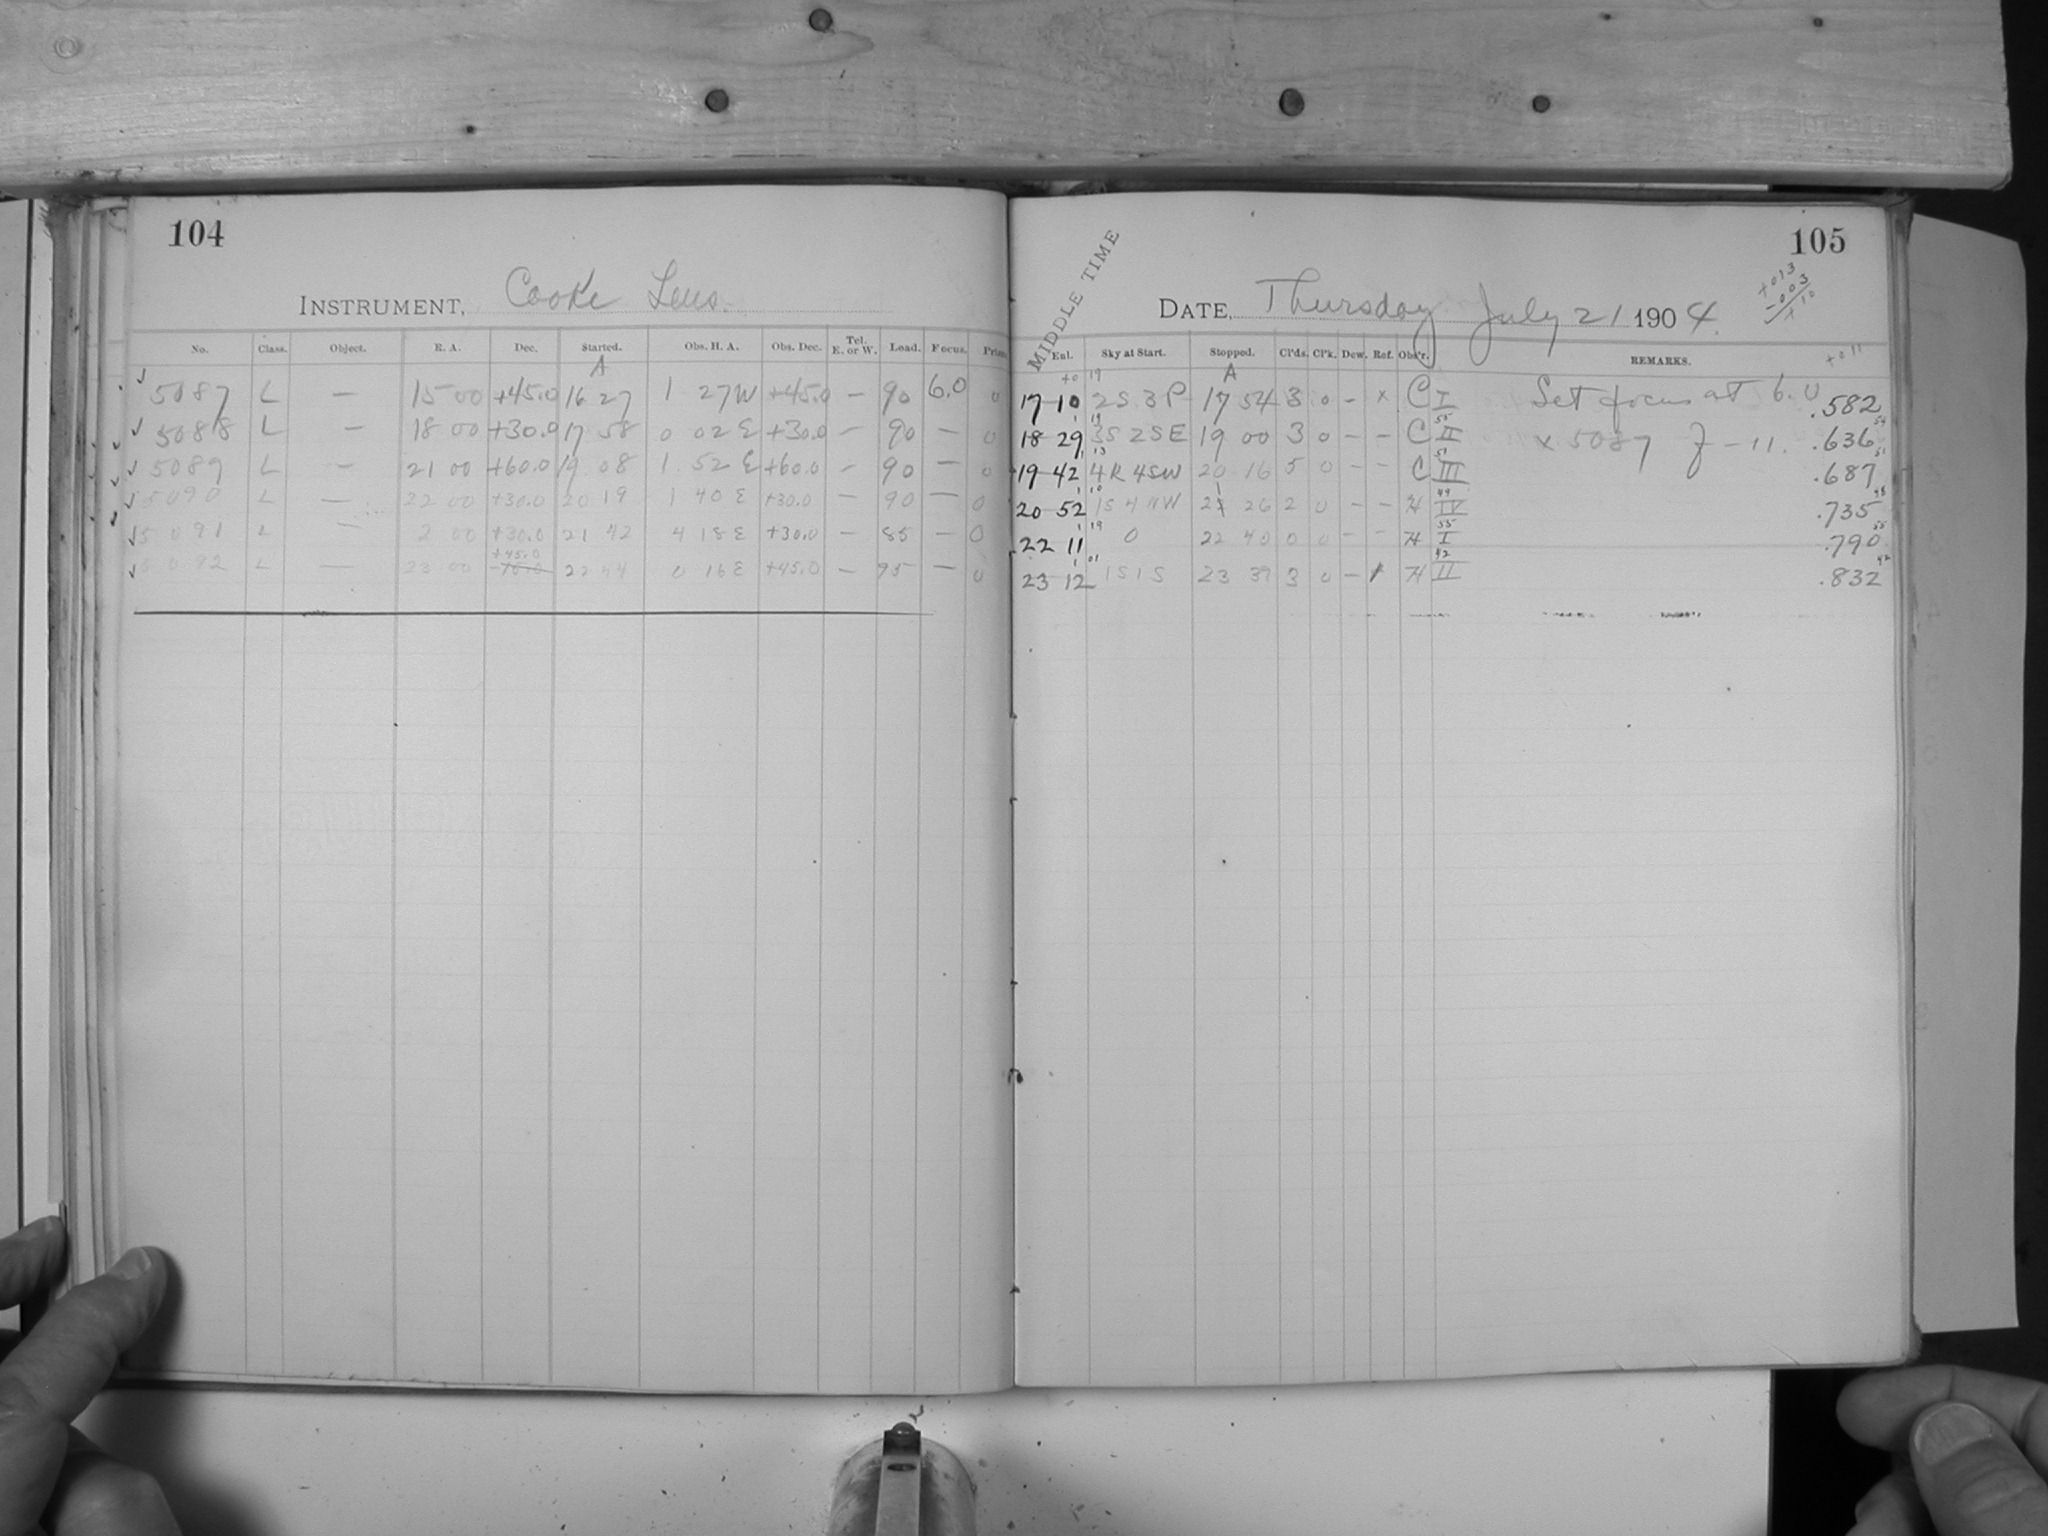 104
INSTRUMENT, Cooke Lens.
No. Class. Object. R. A. Dec. Started. Obs. H. A. Obs. Dec. Tel. E. or W. Lead. Focus. Prism
A
5087 L — 15 00 +45.0 16 27 1 27 W +45.0 — 90 6.0 0
5088 L — 18 00 +30.0 17 58 0 02 E +30.0 — 90 — 0
5089 L — 21 00 +60.0 19 08 1 52 E +60.0 — 90 — 0
5090 L — 22 00 +30.0 20 19 1 40 E +30.0 — 90 — 0
5091 L — 2 00 +30.0 21 42 4 18 E +30.0 — 85 — 0
+45.0
5092 L — 23 00 22 44 0 16 E +45.0 — 95 — 0
105
MIDDLE TIME
DATE, Thursday July 21 1904.
+013
-003
+10
Exl. Sky at Start. Stopped. Cl'ds. Cl'k. Dew. Ref. Obs'r. REMARKS.
+011
A
17 10 2S 3P 17 54 3 0 - x C I Set focus at 6.0 .582
18 29 3S 2SE 19 00 3 0 - - C II x 5087 f - 11. .636
19 42 4R 4SW 20 16 5 0 - - C III .687
20 52 1S 4NW 21 26 2 0 - - H IV .735
22 11 0 22 40 0 0 - - H I .790
23 12 1S 1S 23 39 3 0 - H II .832